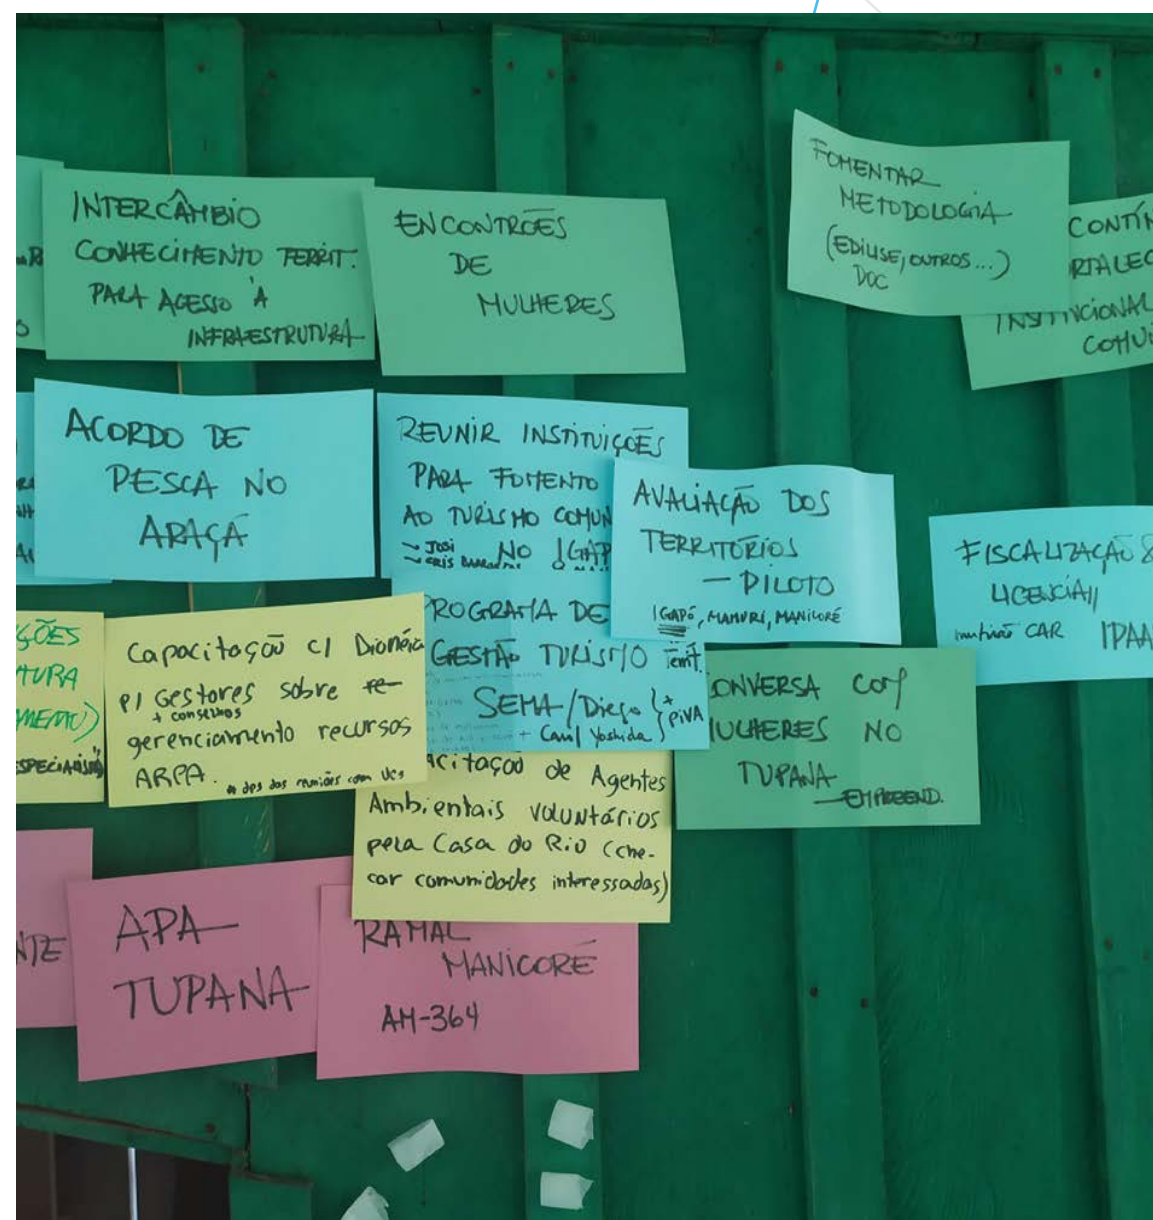 INTERCÂMBIO
CONHECIMENTO TERRIT.
PARA ACESSO À
INFRAESTRUTURA
ENCONTRÕES
DE
MULHERES
FOMENTAR
METODOLOGIA
(EDILUSE, OUTROS...)
DOC
CONTÍN
RTALEC
INSTITNCIONAL
COMUN
ACORDO DE
PESCA NO
ARAÇÁ
REUNIR INSTITUIÇÕES
PARA FOMENTO
AO TURISMO COMUN
→ JOSI NO IGAP
→ CRIS
AVALIAÇÃO DOS
TERRITÓRIOS
— PILOTO
IGAPÓ, MAMURI, MANICORÉ
FISCALIZAÇÃO &
LICENCIA//
mutirão CAR IPAA
ÇÕES
ATURA
AMENTO)
ESPECIALIS
Capacitação c/ Dionéia
p/ Gestores sobre re-
+ conselhos
gerenciamento recursos
ARPA.
* dps das reuniões com UCs
PROGRAMA DE
GESTÃO TURISMO Territ.
SEMA/Diego } + PIVA
+ Carol Yoshida
CONVERSA COM
MULHERES NO
TUPANA
— EMPREEND.
ACITAÇÃO de Agentes
Ambientais voluntários
pela Casa do Rio (che-
car comunidades interessadas)
NTE
APA
TUPANA
RAMAL
MANICORÉ
AM-364